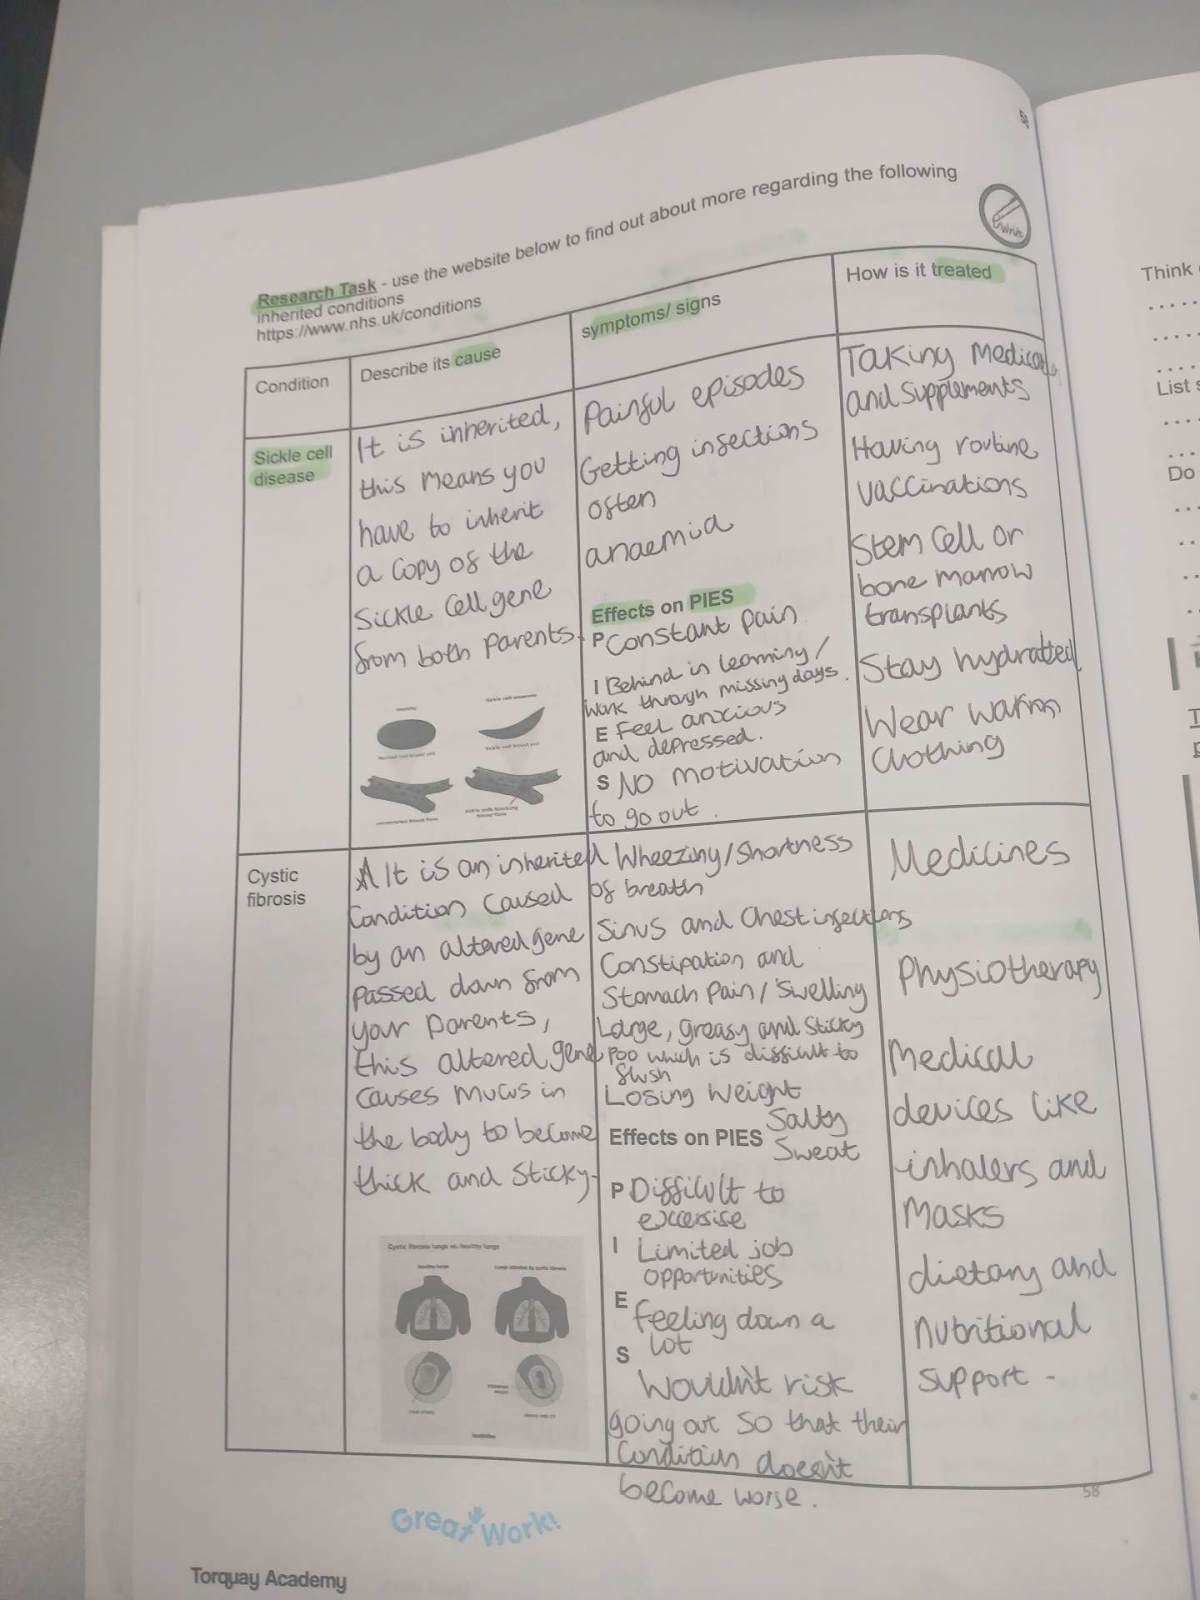 58
Research Task - use the website below to find out about more regarding the following
inherited conditions
https://www.nhs.uk/conditions
Write
Condition
Describe its cause
symptoms/ signs
How is it treated
Sickle cell
disease
It is inherited,
this means you
have to inherit
a copy of the
Sickle cell gene
from both parents.
Painful episodes
Getting infections
often
anaemia
Effects on PIES
P Constant pain
I Behind in learning /
work through missing days.
E Feel anxious
and depressed.
S No motivation
to go out.
Taking Medication
and supplements
Having routine
vaccinations
Stem cell or
bone marrow
transplants
Stay hydrated
Wear warm
clothing
Cystic
fibrosis
It is an inherited
condition caused
by an altered gene
passed down from
your parents,
this altered gene
causes mucus in
the body to become
thick and sticky.
Cystic fibrosis lungs vs. healthy lungs
Wheezing/shortness
of breath
Sinus and chest infections
Constipation and
Stomach pain / swelling
Large, greasy and sticky
poo which is difficult to
flush
Losing weight
Salty
Sweat
Effects on PIES
P Difficult to
excersise
I Limited job
opportunities
E feeling down a
lot
S Wouldn't risk
going out so that their
condition doesn't
become worse.
Medicines
Physiotherapy
Medical
devices like
inhalers and
masks
dietary and
nutritional
support -
Great Work!
58
Torquay Academy
Think
List
Do